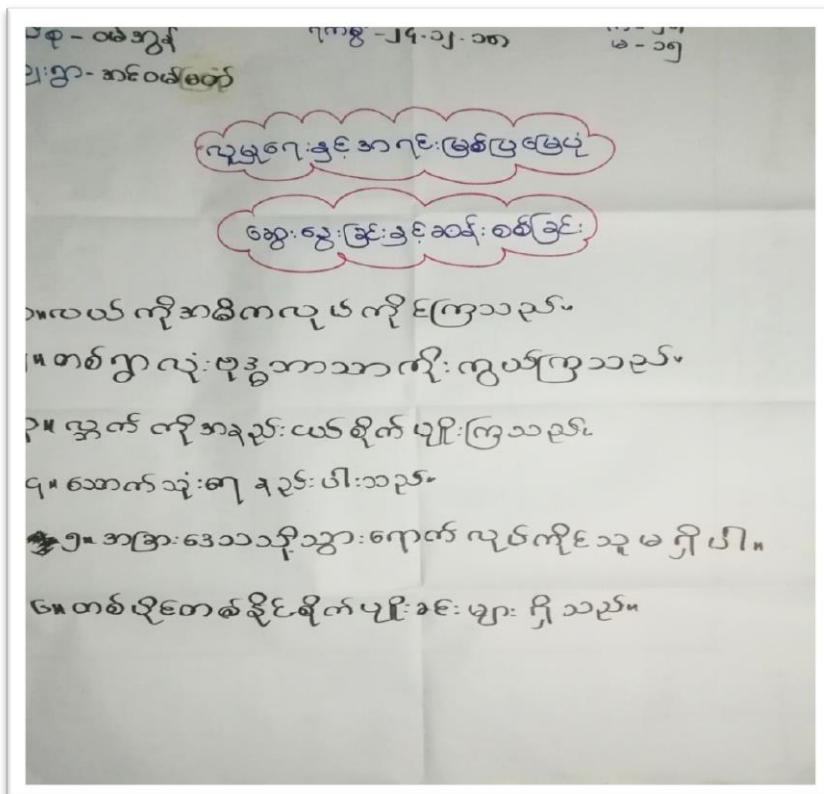 ရက်စွဲ -၂၄.၁၂.၁၈
မ - ၁၅
လူမှုရေးနှင့်အရင်းမြစ်ပြမြေပုံ
ဆွေးနွေးခြင်းနှင့်ဆန်းစစ်ခြင်း
၁။လယ်ကိုအဓိကလုပ်ကိုင်ကြသည်။
၂။တစ်ရွာလုံးဗုဒ္ဓဘာသာကိုးကွယ်ကြသည်။
၃။လ္ဘက်ကိုအနည်းငယ်စိုက်ပျိုးကြသည်။
၄။သောက်သုံးရေ နည်းပါးသည်။
၅။အခြားဒေသသို့သွားရောက်လုပ်ကိုင်သူမရှိပါ။
၆။တစ်ပိုင်တစ်နိုင်စိုက်ပျိုးခင်းများ ရှိသည်။